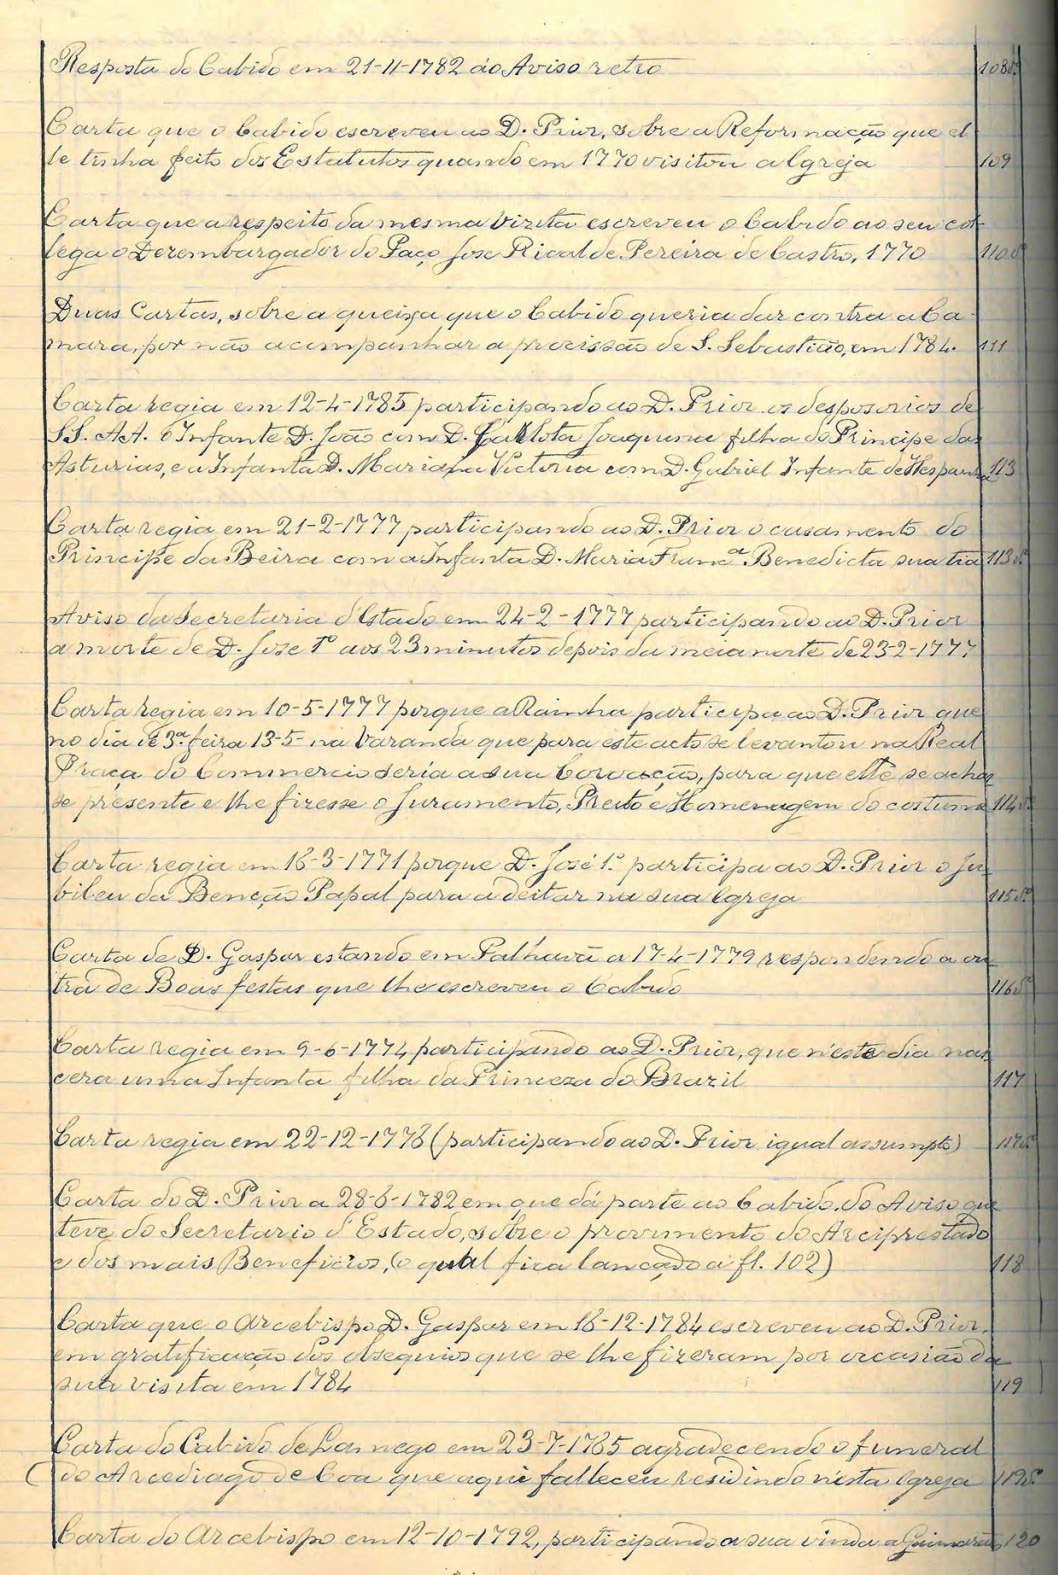 Resposta do Cabido em 21-11-1782 ao Aviso retro 108v.
Carta que o Cabido escreveu ao D. Prior, sobre a Reformação que el-
le tinha feito dos Estatutos quando em 1770 visitou a Igreja 109
Carta que a respeito da mesma vizita escreveu o Cabido ao seu col-
lega o Dezembargador do Paço Jose Ricalde Pereira de Castro, 1770 110v.
Duas Cartas, sobre a queixa que o Cabido queria dar contra a Ca-
mara, por não acompanhar a procissão de S. Sebastião, em 1784. 111
Carta regia em 12-4-1785 participando ao D. Prior os desposorios de
SS. AA. o Infante D. João com D. Carlota Joaquina filha do Principe das
Asturias, e a Infanta D. Mariana Victoria com D. Gabriel Infante de Hespanha 113
Carta regia em 21-2-1777 participando ao D. Prior o casamento do
Principe da Beira com a Infanta D. Maria Franc.ª Benedicta sua tia 113v.
Aviso da Secretaria d'Estado em 24-2-1777 participando ao D. Prior
a morte de D. Jose 1º aos 23 minutos depois da meia norte de 23-2-1777
Carta regia em 10-5-1777 porque a Rainha participa ao D. Prior que
no dia de 3ª feira 13-5- na Varanda que para este acto se levantou na Real
Praça do Commercio seria a sua Coroação, para que elle se achas-
se presente e lhe fizesse o Juramento, Preito e Homenagem do costume 114v.
Carta regia em 16-3-1771 porque D. José 1.º participa ao D. Prior o Ju-
bileu da Benção Papal para a deitar na sua Igreja 115v.
Carta de D. Gaspar estando em Palhavã a 17-4-1779 respondendo a ou-
tra de Boas festas que lhe escreveu o Cabido 116v.
Carta regia em 9-6-1774 participando ao D. Prior, que n'este dia nas-
cera uma Infanta filha da Princeza do Brazil 117
Carta regia em 22-12-1776 (participando ao D. Prior igual assumpto) 117v.
Carta do D. Prior a 28-6-1782 em que dá parte ao Cabido do Aviso que
teve do Secretario d'Estado, sobre o provimento do Arciprestado
e dos mais Beneficios, (o qual fica lançado a fl. 102) 118
Carta que o Arcebispo D. Gaspar em 16-12-1784 escreveu ao D. Prior,
em gratificação dos obsequios que se lhe fizeram por occasião da
sua visita em 1784 119
Carta do Cabido de Lamego em 23-7-1765 agradecendo o funeral
( do Arcediago de Coa que aqui falleceu residindo n'esta Igreja 119v.
Carta do Arcebispo em 12-10-1792, participando a sua vinda a Guimarães 120